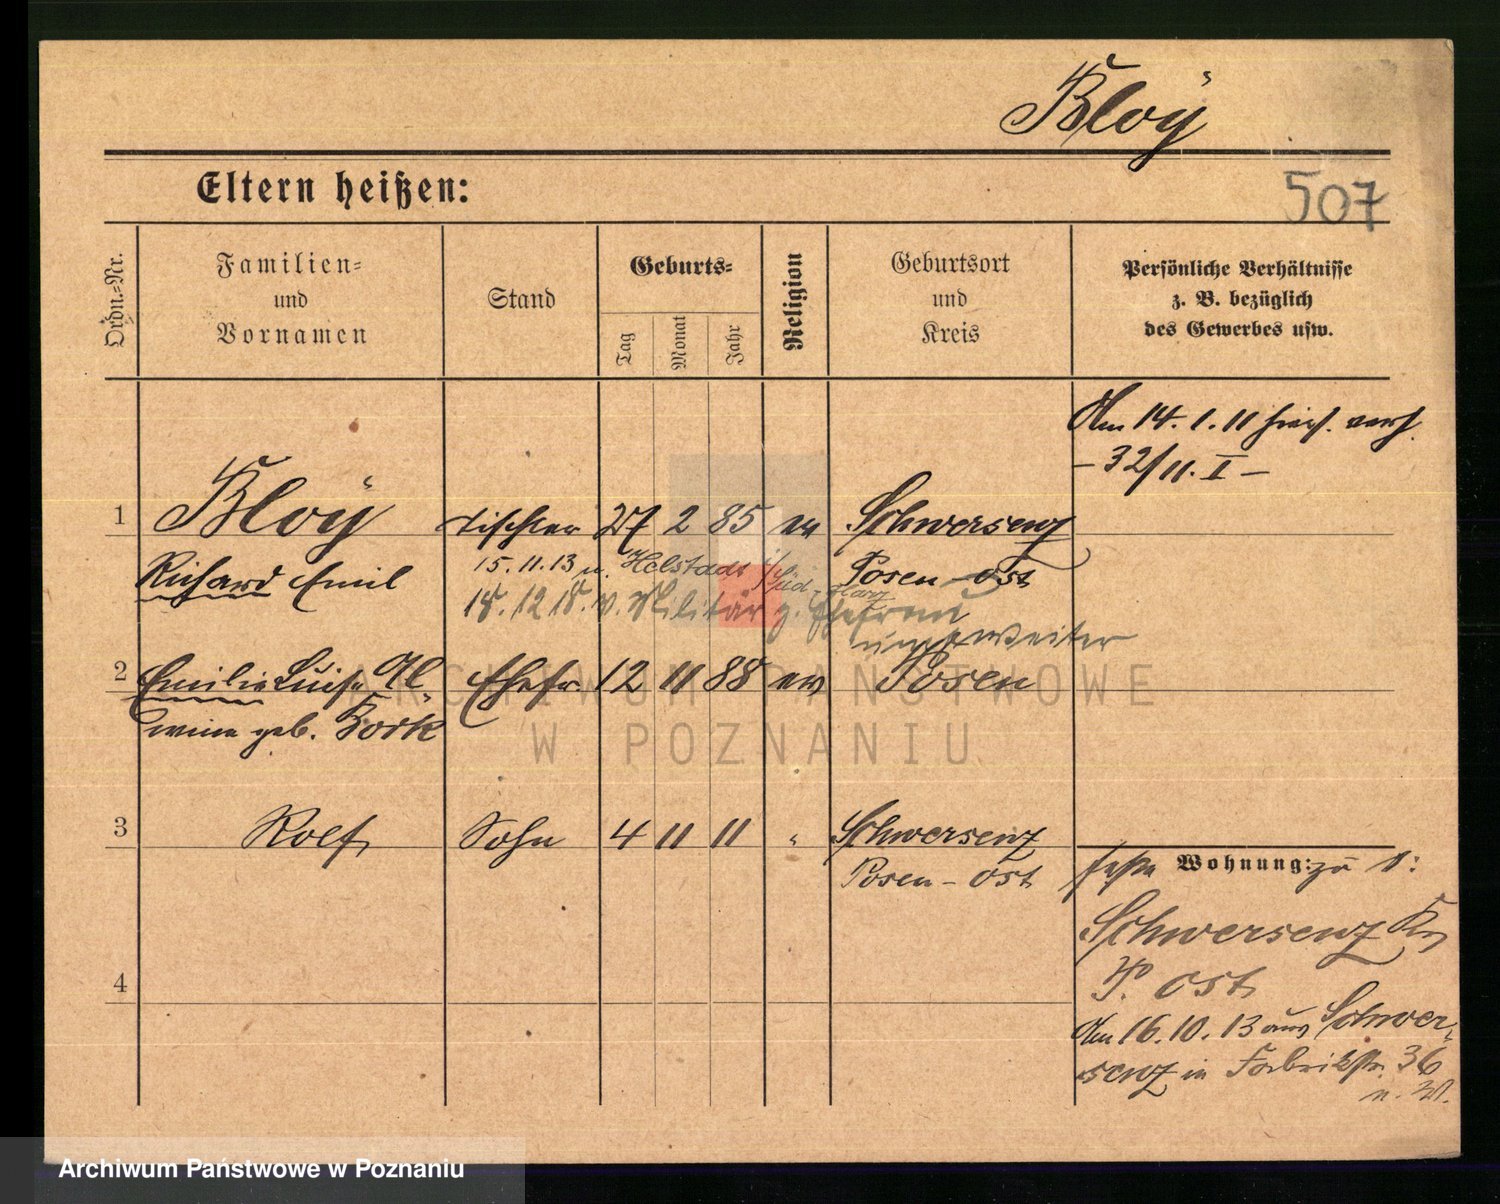 Bloÿ
Eltern heißen:
507
Ordn.-Nr.
Familien-
und
Vornamen
Stand
Geburts-
Tag
Monat
Jahr
Religion
Geburtsort
und
Kreis
Persönliche Verhältnisse
z. B. bezüglich
des Gewerbes usw.
Am 14. 1. 11 hier
- 32/11. I -
1 Bloÿ Tischler 27 2 85 ev Schwersenz
Richard Emil Posen-Ost
15. 11. 13 n. Helstedt
18. 12 18. v. Militär z. Ehefrau
weiter
2 Emilie Luise Al- Ehefr. 12 11 88 ev Posen
wine geb. Kork
3 Rolf Sohn 4 11 11 " Schwersenz
Posen-Ost
Wohnung: zu 1:
Schwersenz Kr
P. Ost
Am 16. 10. 13 aus Schwer-
senz in Fabrikstr. 36
4
ARCHIWUM PAŃSTWOWE
W POZNANIU
Archiwum Państwowe w Poznaniu